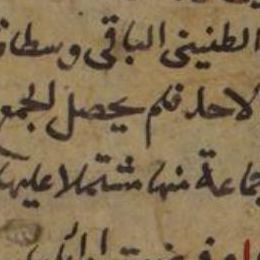 الطنينى الباقى وسطا
لاحد فلم يحصل الجمع
جماعة منها مشتملا عليها